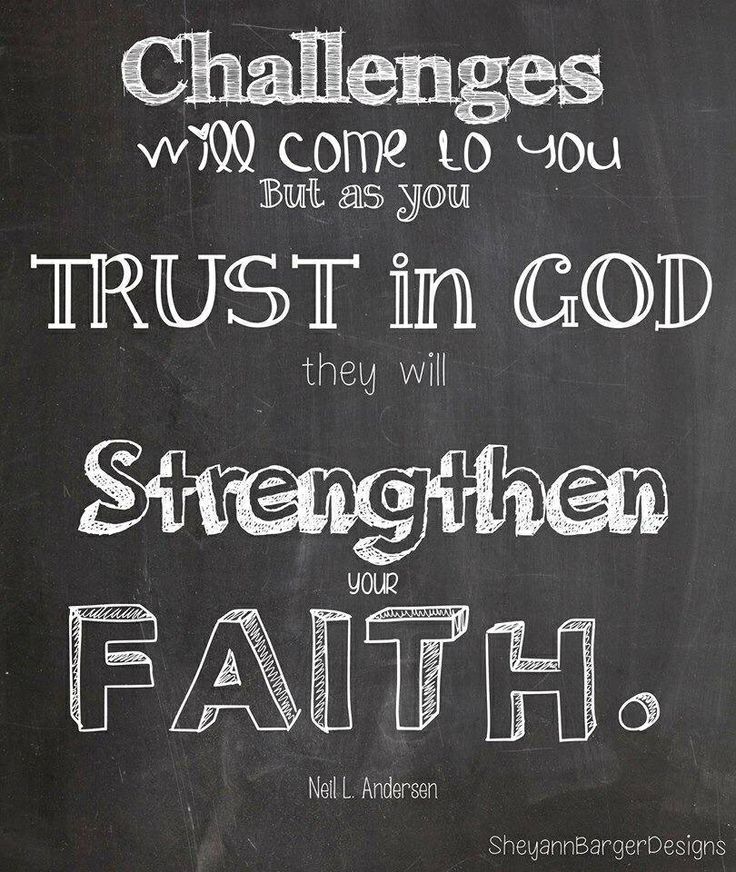 Challenges
will come to you
But as you
TRUST in GOD
they will
Strengthen
YOUR
FAITH.
Neil L. Andersen
SheyannBargerDesigns